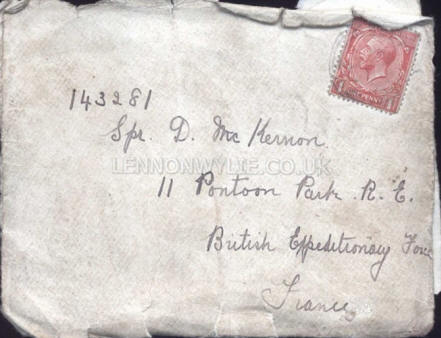 143281
Spr. D. McKernon
LENNONWYLIE.CO.UK
11 Pontoon Park R. E.
British Expeditionary Force
France